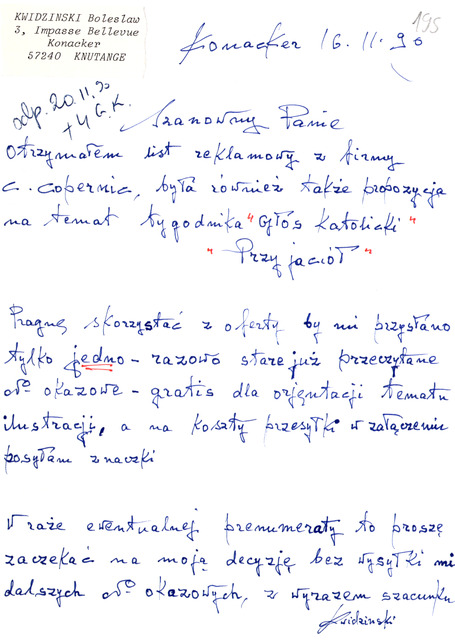 KWIDZINSKI Bolesław
3, Impasse Bellevue
Konacker
57240 KNUTANGE
195
Konacker 16.11.90
odp. 20.11.90
+ 4 G.K.
Szanowny Panie
Otrzymałem list reklamowy z firmy
C. Copernic, była również także propozycja
na temat tygodnika "Głos Katolicki"
"Przyjaciół"
Pragnę skorzystać z oferty by mi przysłano
tylko jedno-razowo stare już przeczytane
No okazowe - gratis dla orjęntacji tematu
ilustracji, a na koszty przesyłki w załączeniu
posyłam znaczki
W raże ewentualnej prenumeraty to proszę
zaczekać na moją decyzję bez wysyłki mi
dalszych No okazowych, z wyrazem szacunku
Kwidzinski